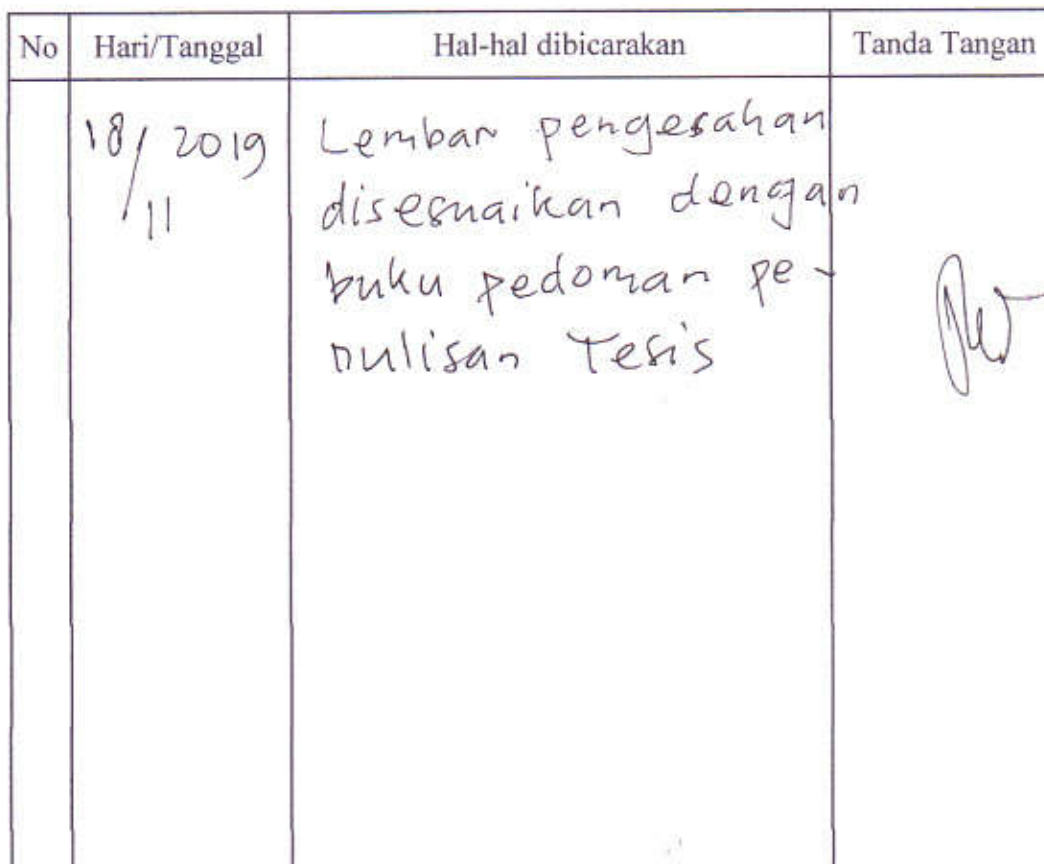 No Hari/Tanggal Hal-hal dibicarakan Tanda Tangan
18/11 2019 Lembar pengesahan
disesuaikan dengan
buku pedoman pe-
nulisan Tesis